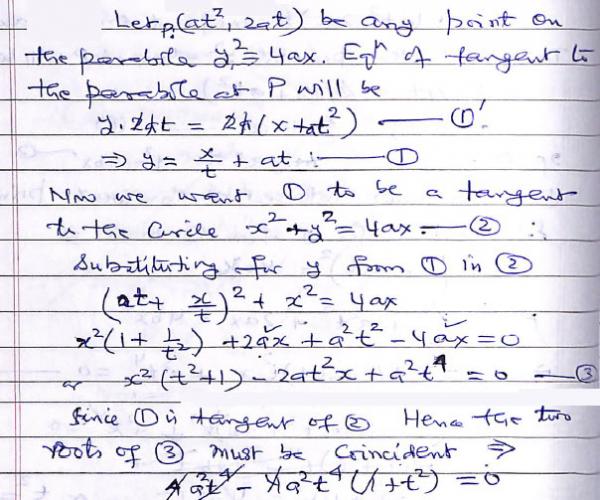 Let P(at², 2at) be any point on
the parabola y² = 4ax. Eqⁿ of tangent to
the parabola at P will be
y. 2at = 2a(x+at²) — ①'
⇒ y = x/t + at — ①
Now we want ① to be a tangent
to the Circle x² + y² = 4ax — ②
Substituting for y from ① in ②
(at + x/t)² + x² = 4ax
x²(1 + 1/t²) + 2ax + a²t² - 4ax = 0
or x²(t²+1) - 2at²x + a²t⁴ = 0 — ③
Since ① is tangent of ② Hence the two
roots of ③ must be Coincident ⇒
4a²t⁴ - 4a²t⁴(1+t²) = 0